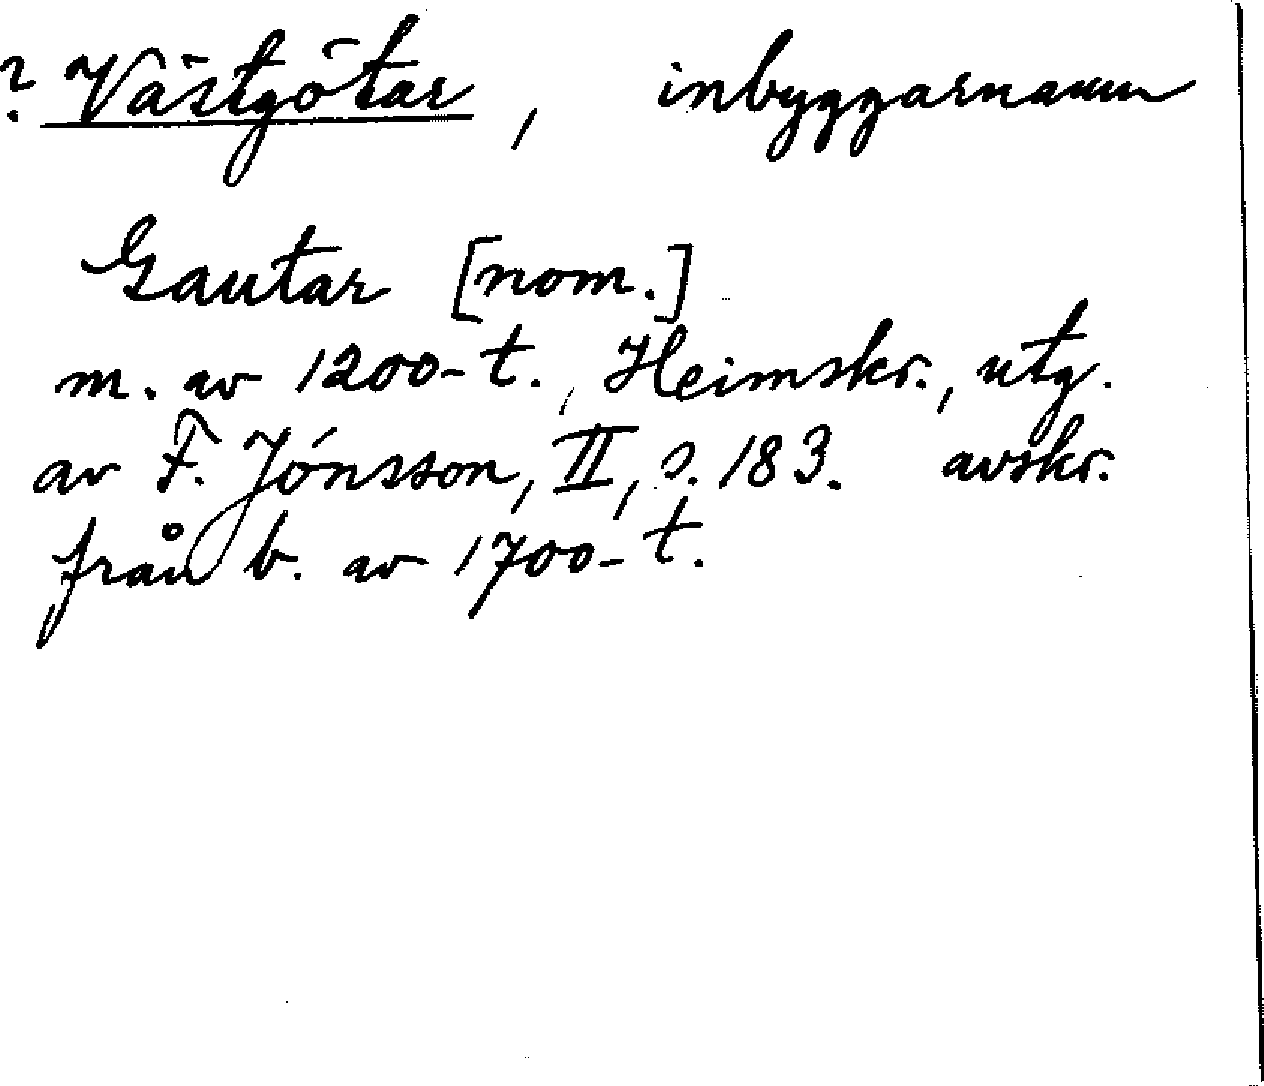 ? Västgötar, inbyggarnamn
Gautar [nom.]
m. av 1200-t., Heimskr., utg.
av F. Jónsson, II, s. 183. avskr.
från b. av 1700-t.